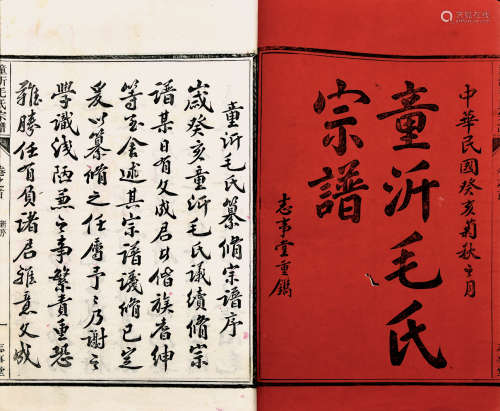 中華民國癸亥菊秋之月
童沂毛氏
宗譜
志事堂重鐫
童沂毛氏纂脩宗譜序
歲癸亥童沂毛氏議續脩宗
譜某日有文成君曰偕族耆紳
等至舍述其宗譜議脩已定
爰以纂脩之任屬予予乃謝之
學識淺陋兼之事繁責重恐
難勝任有負諸君雅意文成
童沂毛氏宗譜